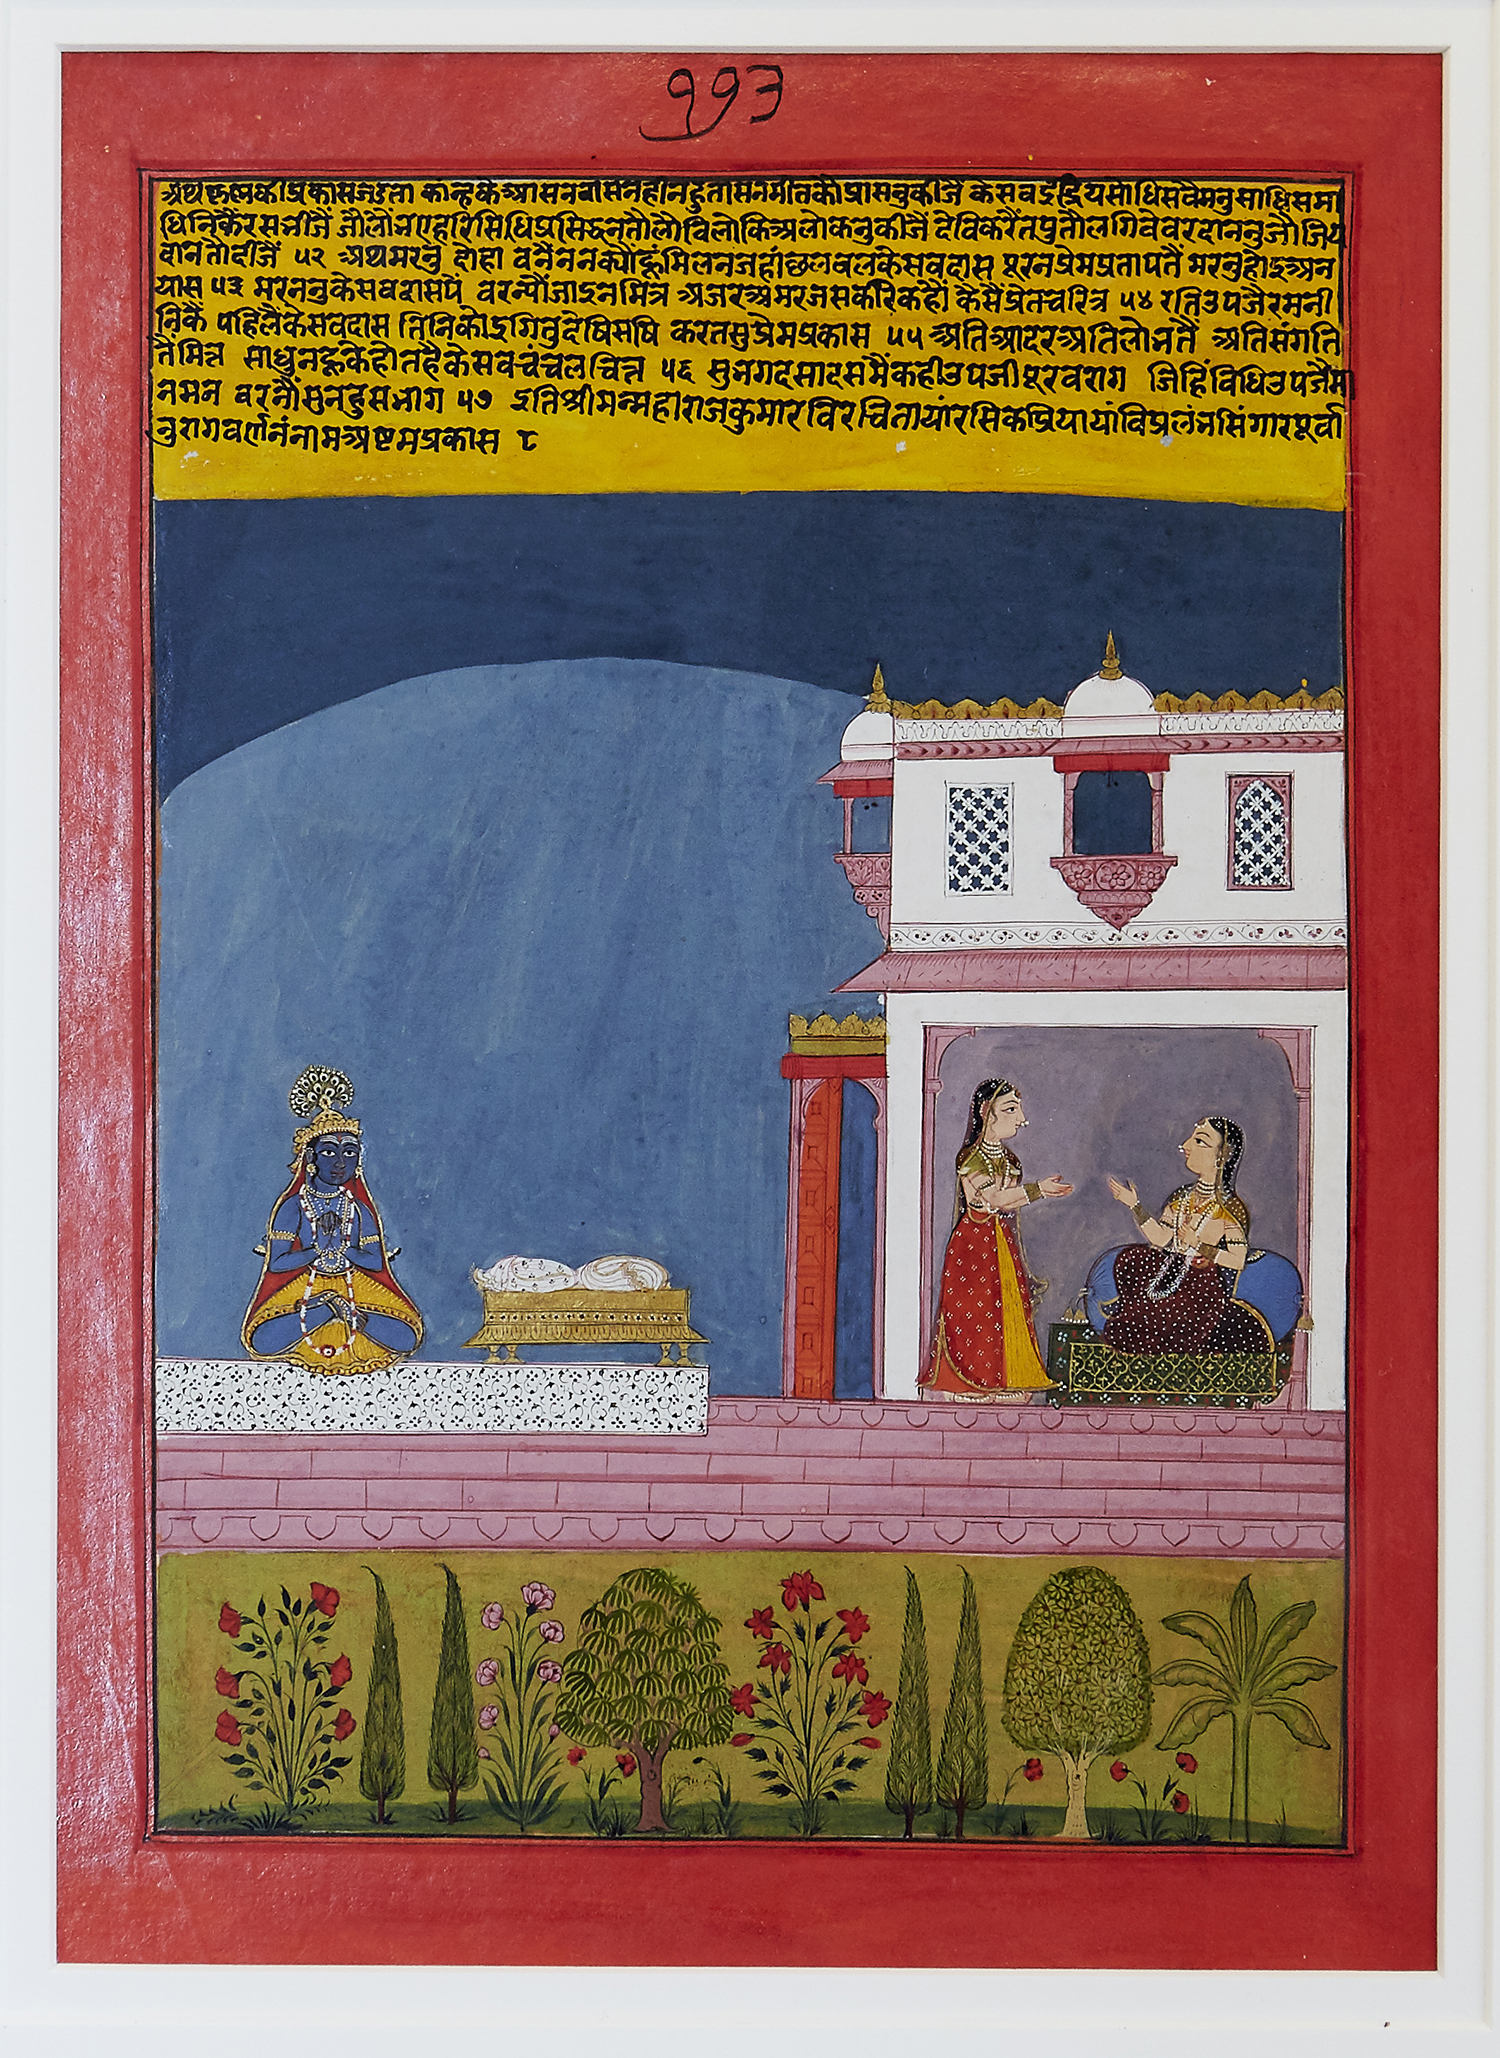 ११३
अथ कृष्णकी प्रकास जडता कान्हके आसन वासनहीन हुतासनमीतको प्रासनु कीजै केसव इंद्रिय सोधि सवै मनु साधि समा
धिनिकै रस भीजै जौलौं न ए हरि सिधि प्रसिद्ध न तौलौ विलोकि अलोकनु कीजै देवि करै तपु तौलगि वे वरदाननु जौ जिय
दान तौ दीजै ५२ अथ मरनु दोहा वनैं न नैक्यौंहूं मिलन जहां छलवल केसवदास पूरन प्रेम प्रताप तैं मरनु होइ अन
यास ५३ मरननु केसवदास पैं वरन्यौं जाइ न मित्र अजर अमर जस करि कहौं कैसैं प्रेत चरित्र ५४ रति उपजै रमनी
निकै पहिलै केसवदास तिनिकी इगितु देषि सषि करत सुप्रेम प्रकास ५५ अति आदर अति लोभ तैं अति संगति
तैं मित्र साधुनहूके होत है केसव चंचल चित्र ५६ सुभग दसा दसमैं कही उपजी पूरवराग जिहिं विधि उपजै मा
नमन वरनौं सुनहु सभाग ५७ इति श्रीमन्महाराजकुमारविरचितायां रसिकप्रियायां विप्रलंभसिंगारपूर्वा
नुरागवर्णनंनाम अष्टमप्रकास ८